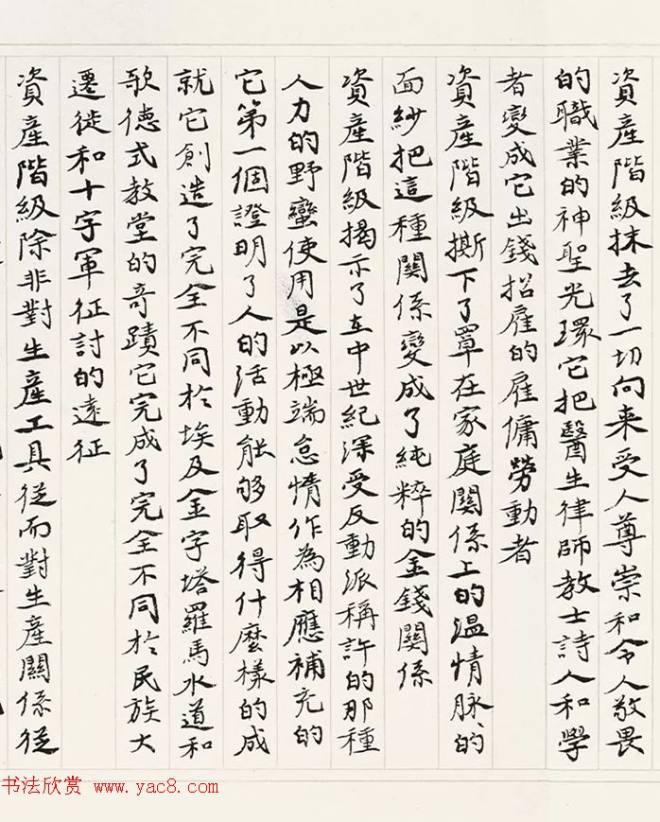 資產階級抹去了一切向来受人尊崇和令人敬畏
的職業的神聖光環它把醫生律師教士詩人和學
者變成它出錢招雇的雇傭勞動者
資產階級撕下了罩在家庭關係上的温情脉、的
面紗把這種關係變成了純粹的金錢關係
資產階級揭示了在中世紀深受反動派稱許的那種
人力的野蠻使用是以極端怠惰作為相應補充的
它第一個證明了人的活動能够取得什麼樣的成
就它創造了完全不同於埃及金字塔羅馬水道和
歌德式教堂的奇蹟它完成了完全不同於民族大
遷徙和十字軍征討的遠征
資產階級除非對生產工具從而對生產關係從
书法欣赏 www.yac8.com